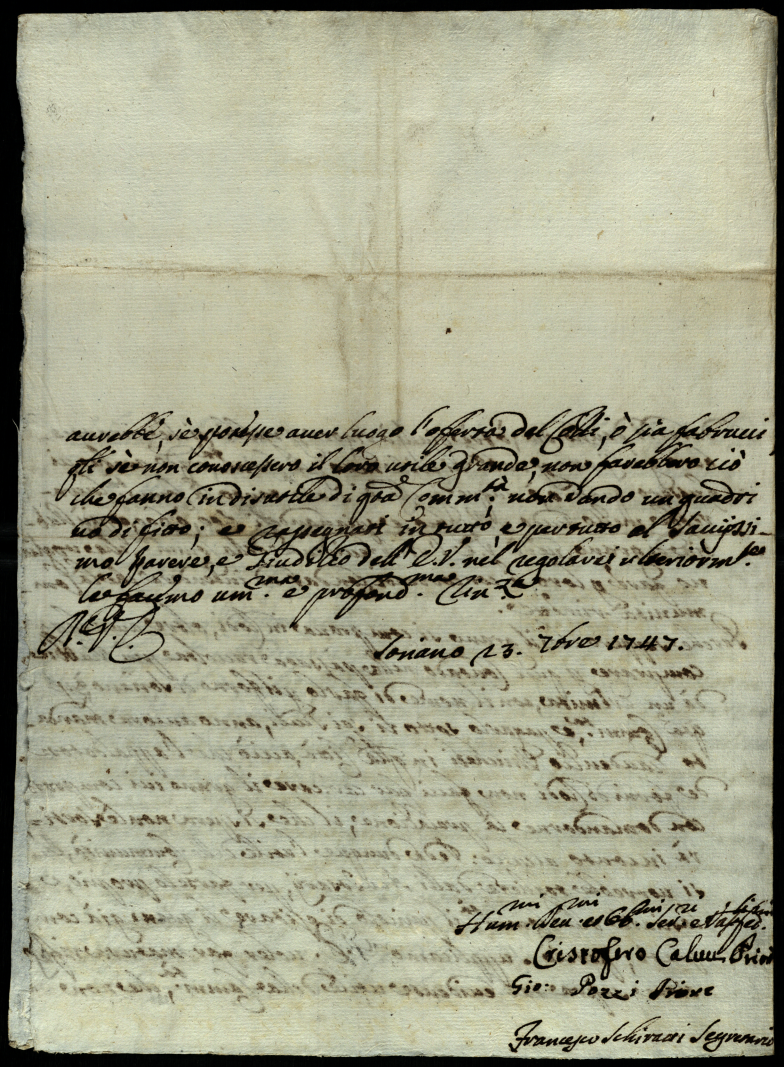 aurebbe, se potesse auer luogo l'offerta del Celli, ò sia fabrucci
gli se non conoscessero il loro utile grande, non farebbero ciò
che fanno in disutile di qta Commtà: non dando un quadri
no di fitto; e rassegnati in tutto e per tutto al Sauijssi-
mo parere, e Giudizio dell' E.V. nel regolarci ulteriormte
le facciamo umma. e profondma. Rinza
D. V. E.
Soriano 23. 7bre 1747.
Hummi Deumi et Obbmi Seri e Vassi
Cristofero Priore
Gio: Pozzi Priore
Francesco Segretario